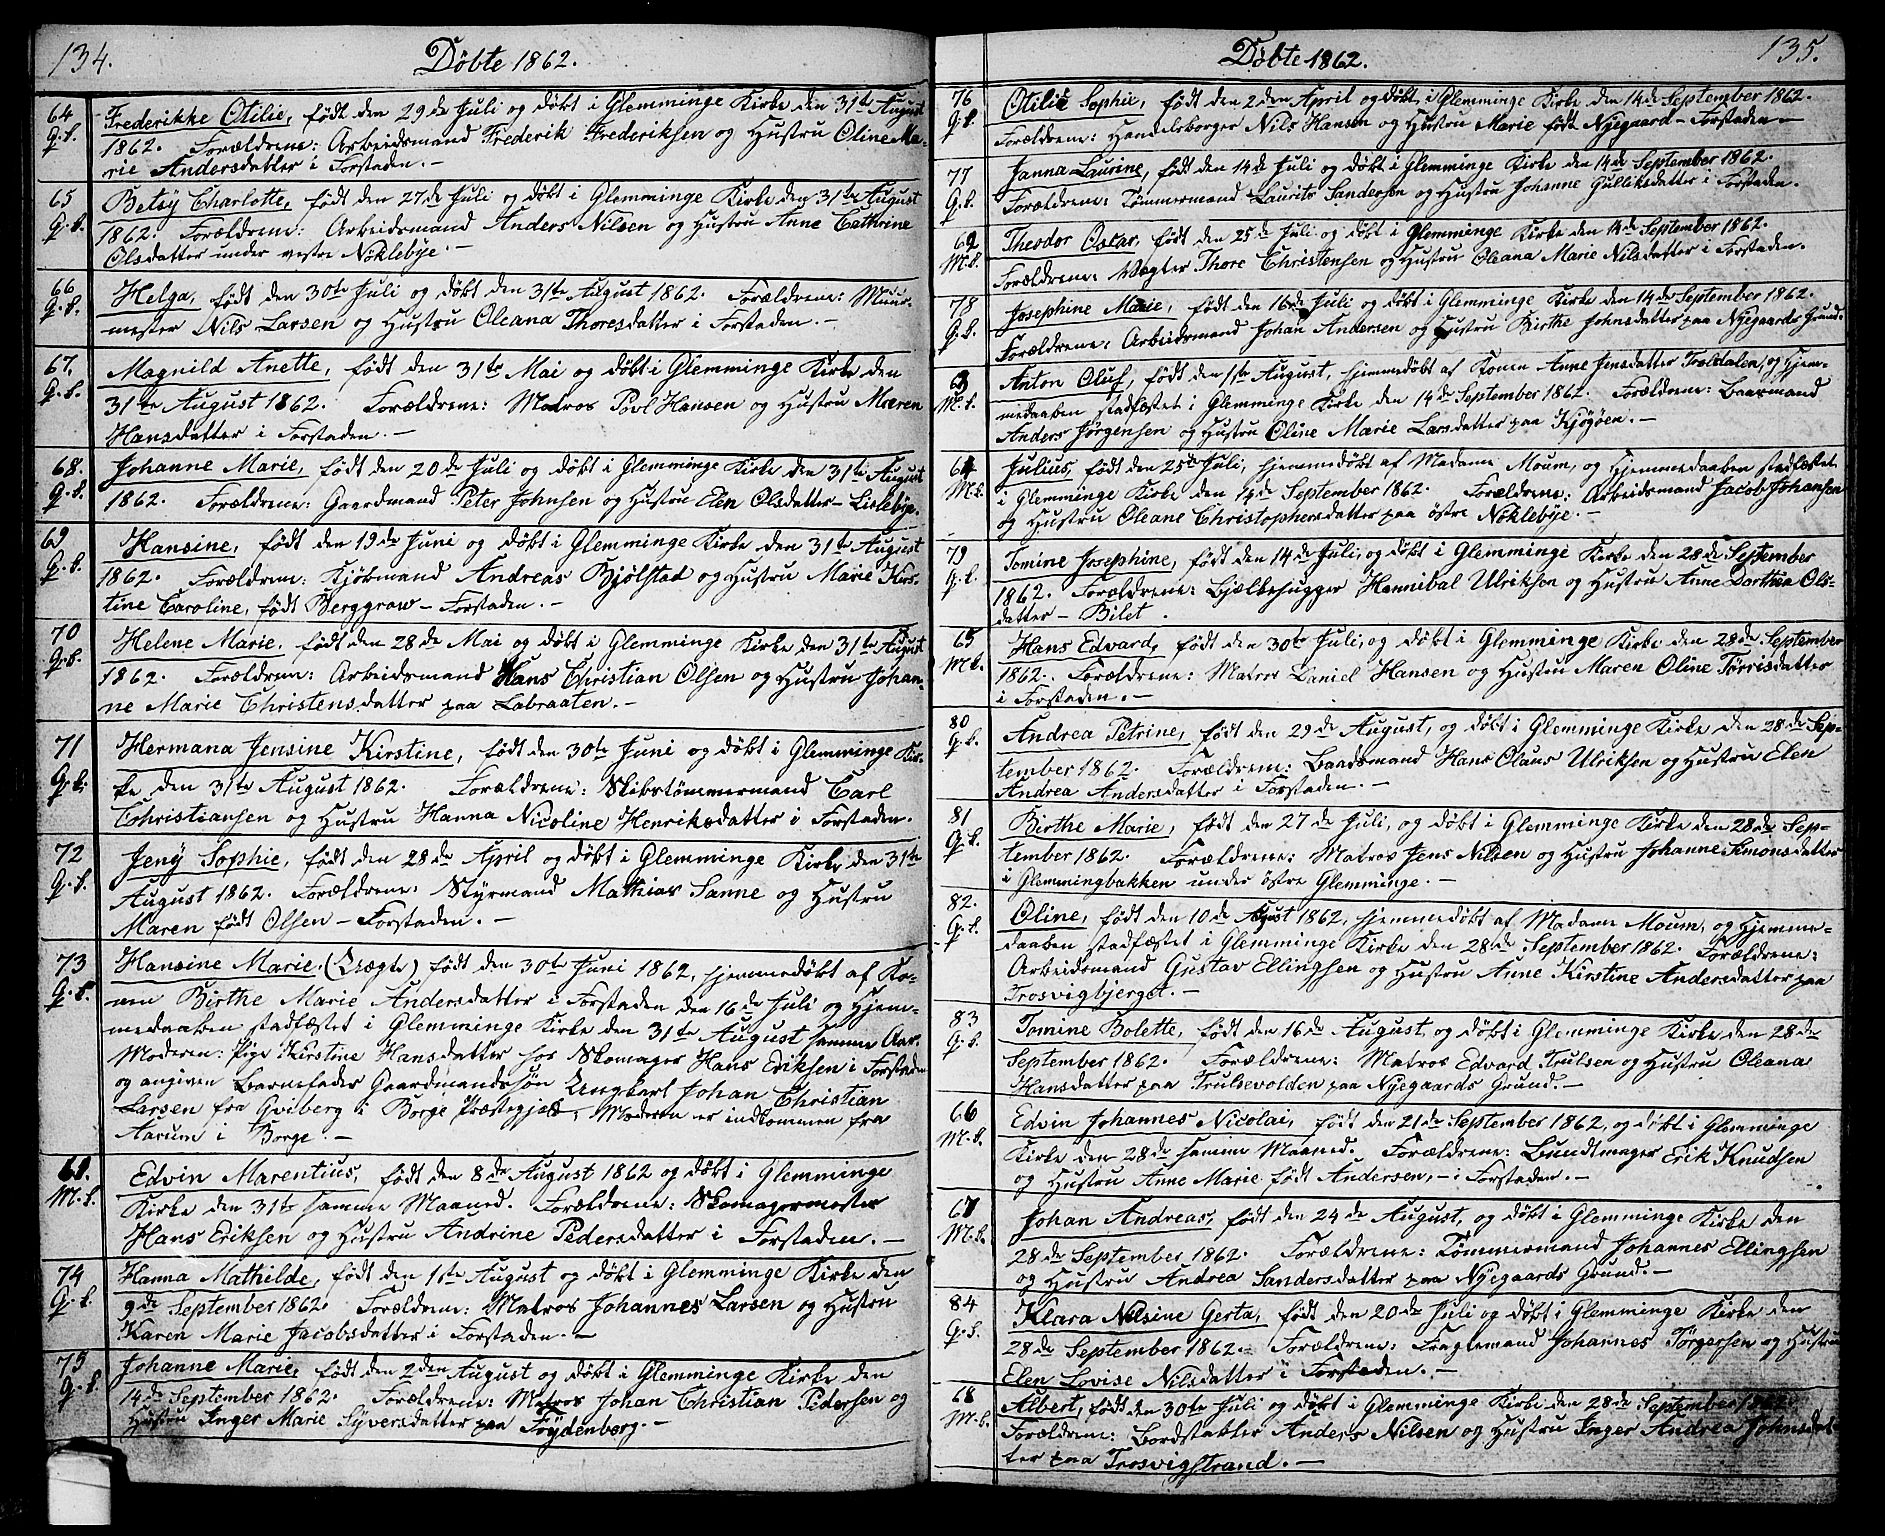 134.
Döbte 1862.
64
Q.k.
Frederikke Otilie, födt den 29de Juli og döbt i Glemminge Kirke den 31te August
1862. Forældrene: Arbeidsmand Frederik Frederiksen og Hustru Oline Ma-
rie Andersdatter i Forstaden.-
65
Q.k.
Betsy Charlotte, födt den 27de Juli og döbt i Glemminge Kirke den 31te August
1862. Forældrene: Arbeidsmand Anders Nilsen og Hustru Anne Cathrine
Olsdatter under vestre Nöklebye.-
66
Q.k.
Helga, födt den 30te Juli og döbt den 31te August 1862. Forældrene: Muur-
mester Nils Larsen og Hustru Oleana Thoresdatter i Forstaden.-
67.
Q.k.
Magnild Anette, födt den 31te Mai og döbt i Glemminge Kirke den
31te August 1862. Forældrene: Matros Povl Hansen og Hustru Maren
Hansdatter i Forstaden.-
68.
Q.k.
Johanne Marie, födt den 20de Juli og döbt i Glemminge Kirke den 31te August
1862. Forældrene: Gaardmand Peter Johnsen og Hustru Elen Olsdatter - Lislebye.
69
Q.k.
Hansine, födt den 19de Juni og döbt i Glemminge Kirke den 31te August
1862. Forældrene: Kjöbmand Andreas Bjölstad og Hustru Marie Kirs-
tine Caroline, födt Berggraw - Forstaden.-
70
Q.k.
Helene Marie, födt den 28de Mai og döbt i Glemminge Kirke den 31te August
1862. Forældrene: Arbeidsmand Hans Christian Olsen og Hustru Johan-
ne Marie Christensdatter paa Labraaten.-
71
Q.k.
Hermana Jensine Kirstine, födt den 30te Juni og döbt i Glemminge Kir-
ke den 31te August 1862. Forældrene: Skibstömmermand Carl
Christiansen og Hustru Hanna Nicoline Henriksdatter i Forstaden.
72
Q.k.
Jeny Sophie, födt den 28de April og döbt i Glemminge Kirke den 31te
August 1862. Forældrene: Styrmand Mathias Sanne og Hustru
Maren födt Olsen - Forstaden.-
73
Q.k.
Hansine Marie, (Uægte) födt den 30te Juni 1862, hjemmedöbt af Ko-
nen Birthe Marie Andersdatter i Forstaden den 16de Juli og Hjem-
medaaben stadfæstet i Glemminge Kirke den 31te August samme Aar.
Moderen: Pige Kirstine Hansdatter hos Skomager Hans Eriksen i Forstaden
og angiven Barnefader Gaardmandssön Ungkarl Johan Christian
Larsen fra Gviberg i Borge Præstegjæld; Moderen er indkommen fra
Aarum i Borge.-
61.
M.k.
Edvin Marentius, födt den 8de August 1862 og döbt i Glemminge
Kirke den 31te samme Maaned. Forældrene: Skomagermester
Hans Eriksen og Hustru Andrine Pedersdatter i Forstaden.-
74
Q.k.
Hanna Mathilde, födt den 1ste August og döbt i Glemminge Kirke den
9de September 1862. Forældrene: Matros Johannes Larsen og Hustru
Karen Marie Jacobsdatter i Forstaden.-
75
Q.k.
Johanne Marie, födt den 2den August og döbt i Glemminge Kirke den
14de September 1862. Forældrene: Matros Johan Christian Pedersen og
Hustru Inger Marie Syversdatter paa Frydenberg.-
135.
Döbte 1862.
76
Q.k.
Otilie Sophie, födt den 2den April og döbt i Glemminge Kirke den 14de September 1862.
Forældrene: Handelsborger Nils Hansen og Hustru Marie födt Nyegaard - Forstaden-
77
Q.k.
Janna Laurine, födt den 14de Juli og döbt i Glemminge Kirke den 14de September 1862.
Forældrene: Tömmermand Laurits Sandersen og Hustru Johanne Gulliksdatter i Forstaden.
62
M.k.
Theodor Oscar, födt den 25de Juli og döbt i Glemminge Kirke den 14de September 1862.
Forældrene: Vægter Thore Christensen og Hustru Oleana Marie Nilsdatter i Forstaden.
78
Q.k.
Josephine Marie, födt den 16de Juli og döbt i Glemminge Kirke den 14de September 1862.
Forældrene: Arbeidsmand Johan Andersen og Hustru Birthe Johnsdatter paa Nyegaards Grund.
63
M.k.
Anton Oluf, födt den 1ste August, hjemmedöbt af Konen Anne Jensdatter Trosdalen, og Hjem-
medaaben stadfæstet i Glemminge Kirke den 14de September 1862. Forældrene: Baadsmand
Anders Jörgensen og Hustru Oline Marie Larsdatter paa Kjöyöen.-
64
M.k.
Julius, födt den 25de Juli, hjemmedöbt af Madame Moum, og Hjemmedaaben stadfæstet
i Glemminge Kirke den 14de September 1862. Forældrene: Arbeidsmand Jacob Johansen
og Hustru Oleane Christophersdatter paa östre Nöklebye.-
79
Q.k.
Tomine Josephine, födt den 14de Juli, og döbt i Glemminge Kirke den 28de September
1862. Forældrene: Bjælkehugger Hannibal Ulriksen og Hustru Anne Dorthea Ols-
datter - Bilet.
65
M.k.
Hans Edvard, födt den 30te Juli, og döbt i Glemminge Kirke den 28de September
1862. Forældrene: Matros Daniel Hansen og Hustru Maren Oline Törrisdatter
i Forstaden.-
80
Q.k.
Andrea Petrine, födt den 29de August, og döbt i Glemminge Kirke den 28de Sep-
tember 1862. Forældrene: Baadsmand Hans Olaus Ulriksen og Hustru Elen
Andrea Andersdatter i Forstaden.-
81
Q.k.
Birthe Marie, födt den 27de Juli, og döbt i Glemminge Kirke den 28de Sep-
tember 1862. Forældrene: Matros Jens Nilsen og Hustru Johanne Simonsdatter
i Glemmingbakken under östre Glemminge.-
82.
Q.k.
Oline, födt den 10de August 1862, hjemmedöbt af Madam Moum, og Hjemme-
daaben stadfæstet i Glemminge Kirke den 28de September 1862. Forældrene:
Arbeidsmand Gustav Ellingsen og Hustru Anne Kirstine Andersdatter paa
Trosvigbjerget.-
83
Q.k.
Tomine Bolette, födt den 16de August, og döbt i Glemminge Kirke den 28de
September 1862. Forældrene: Matros Edvard Trulsen og Hustru Oleana
Hansdatter paa Trulsevolden paa Nyegaards Grund.-
66
M.k.
Edvin Johannes Nicolai, födt den 21de September 1862, og döbt i Glemminge
Kirke den 28de samme Maaned. Forældrene: Bundtmager Erik Knudsen
og Hustru Anne Marie födt Andersen,- i Forstaden.-
67
M.k.
Johan Andreas, födt den 24de August, og döbt i Glemminge Kirke den
28de September 1862. Forældrene: Tömmermand Johannes Ellingsen
og Hustru Andrea Sandersdatter paa Nyegaards Grund.-
84
Q.k.
Klara Nilsine Gerta, födt den 20de Juli og döbt i Glemminge Kirke den
28de September 1862. Forældrene: Fragtemand Johannes Törgersen og Hustru
Elen Lovise Nilsdatter i Forstaden.-
68
M.k.
Albert, födt den 30te Juli og döbt i Glemminge Kirke den 28de September 1862.
Forældrene: Bordstabler Anders Nilsen og Hustru Inger Andrea Johnsdat-
ter paa Trosvigstrand.-